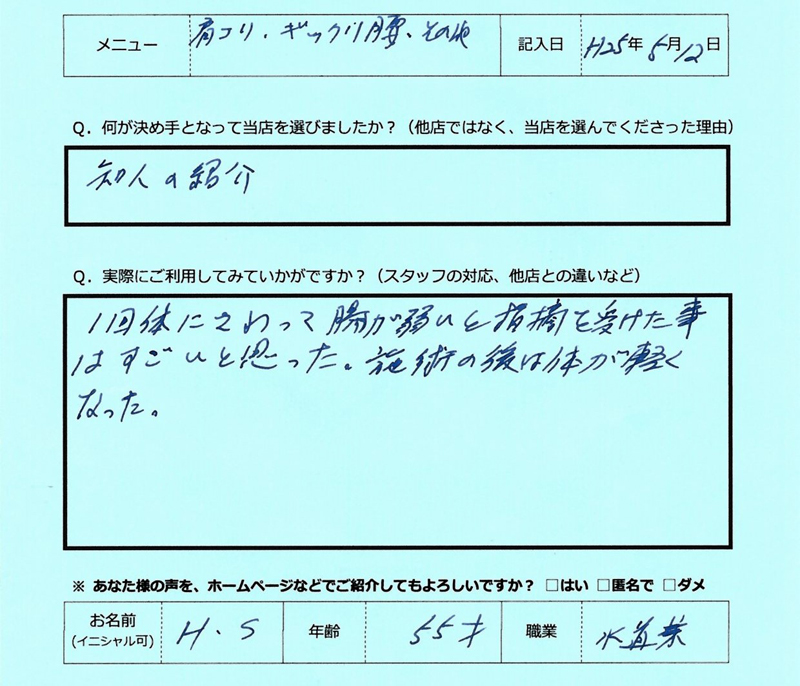 メニュー 肩コリ、ギックリ腰、その他 記入日 H25年 5月12日
Q. 何が決め手となって当店を選びましたか？（他店ではなく、当店を選んでくださった理由）
知人の紹介
Q. 実際にご利用してみていかがですか？（スタッフの対応、他店との違いなど）
1回体にさわって腸が弱いと指摘を受けた事
はすごいと思った。施術の後は体が軽く
なった。
※ あなた様の声を、ホームページなどでご紹介してもよろしいですか？ □はい □匿名で □ダメ
お名前 H.S 年齢 55才 職業 水道業
(イニシャル可)